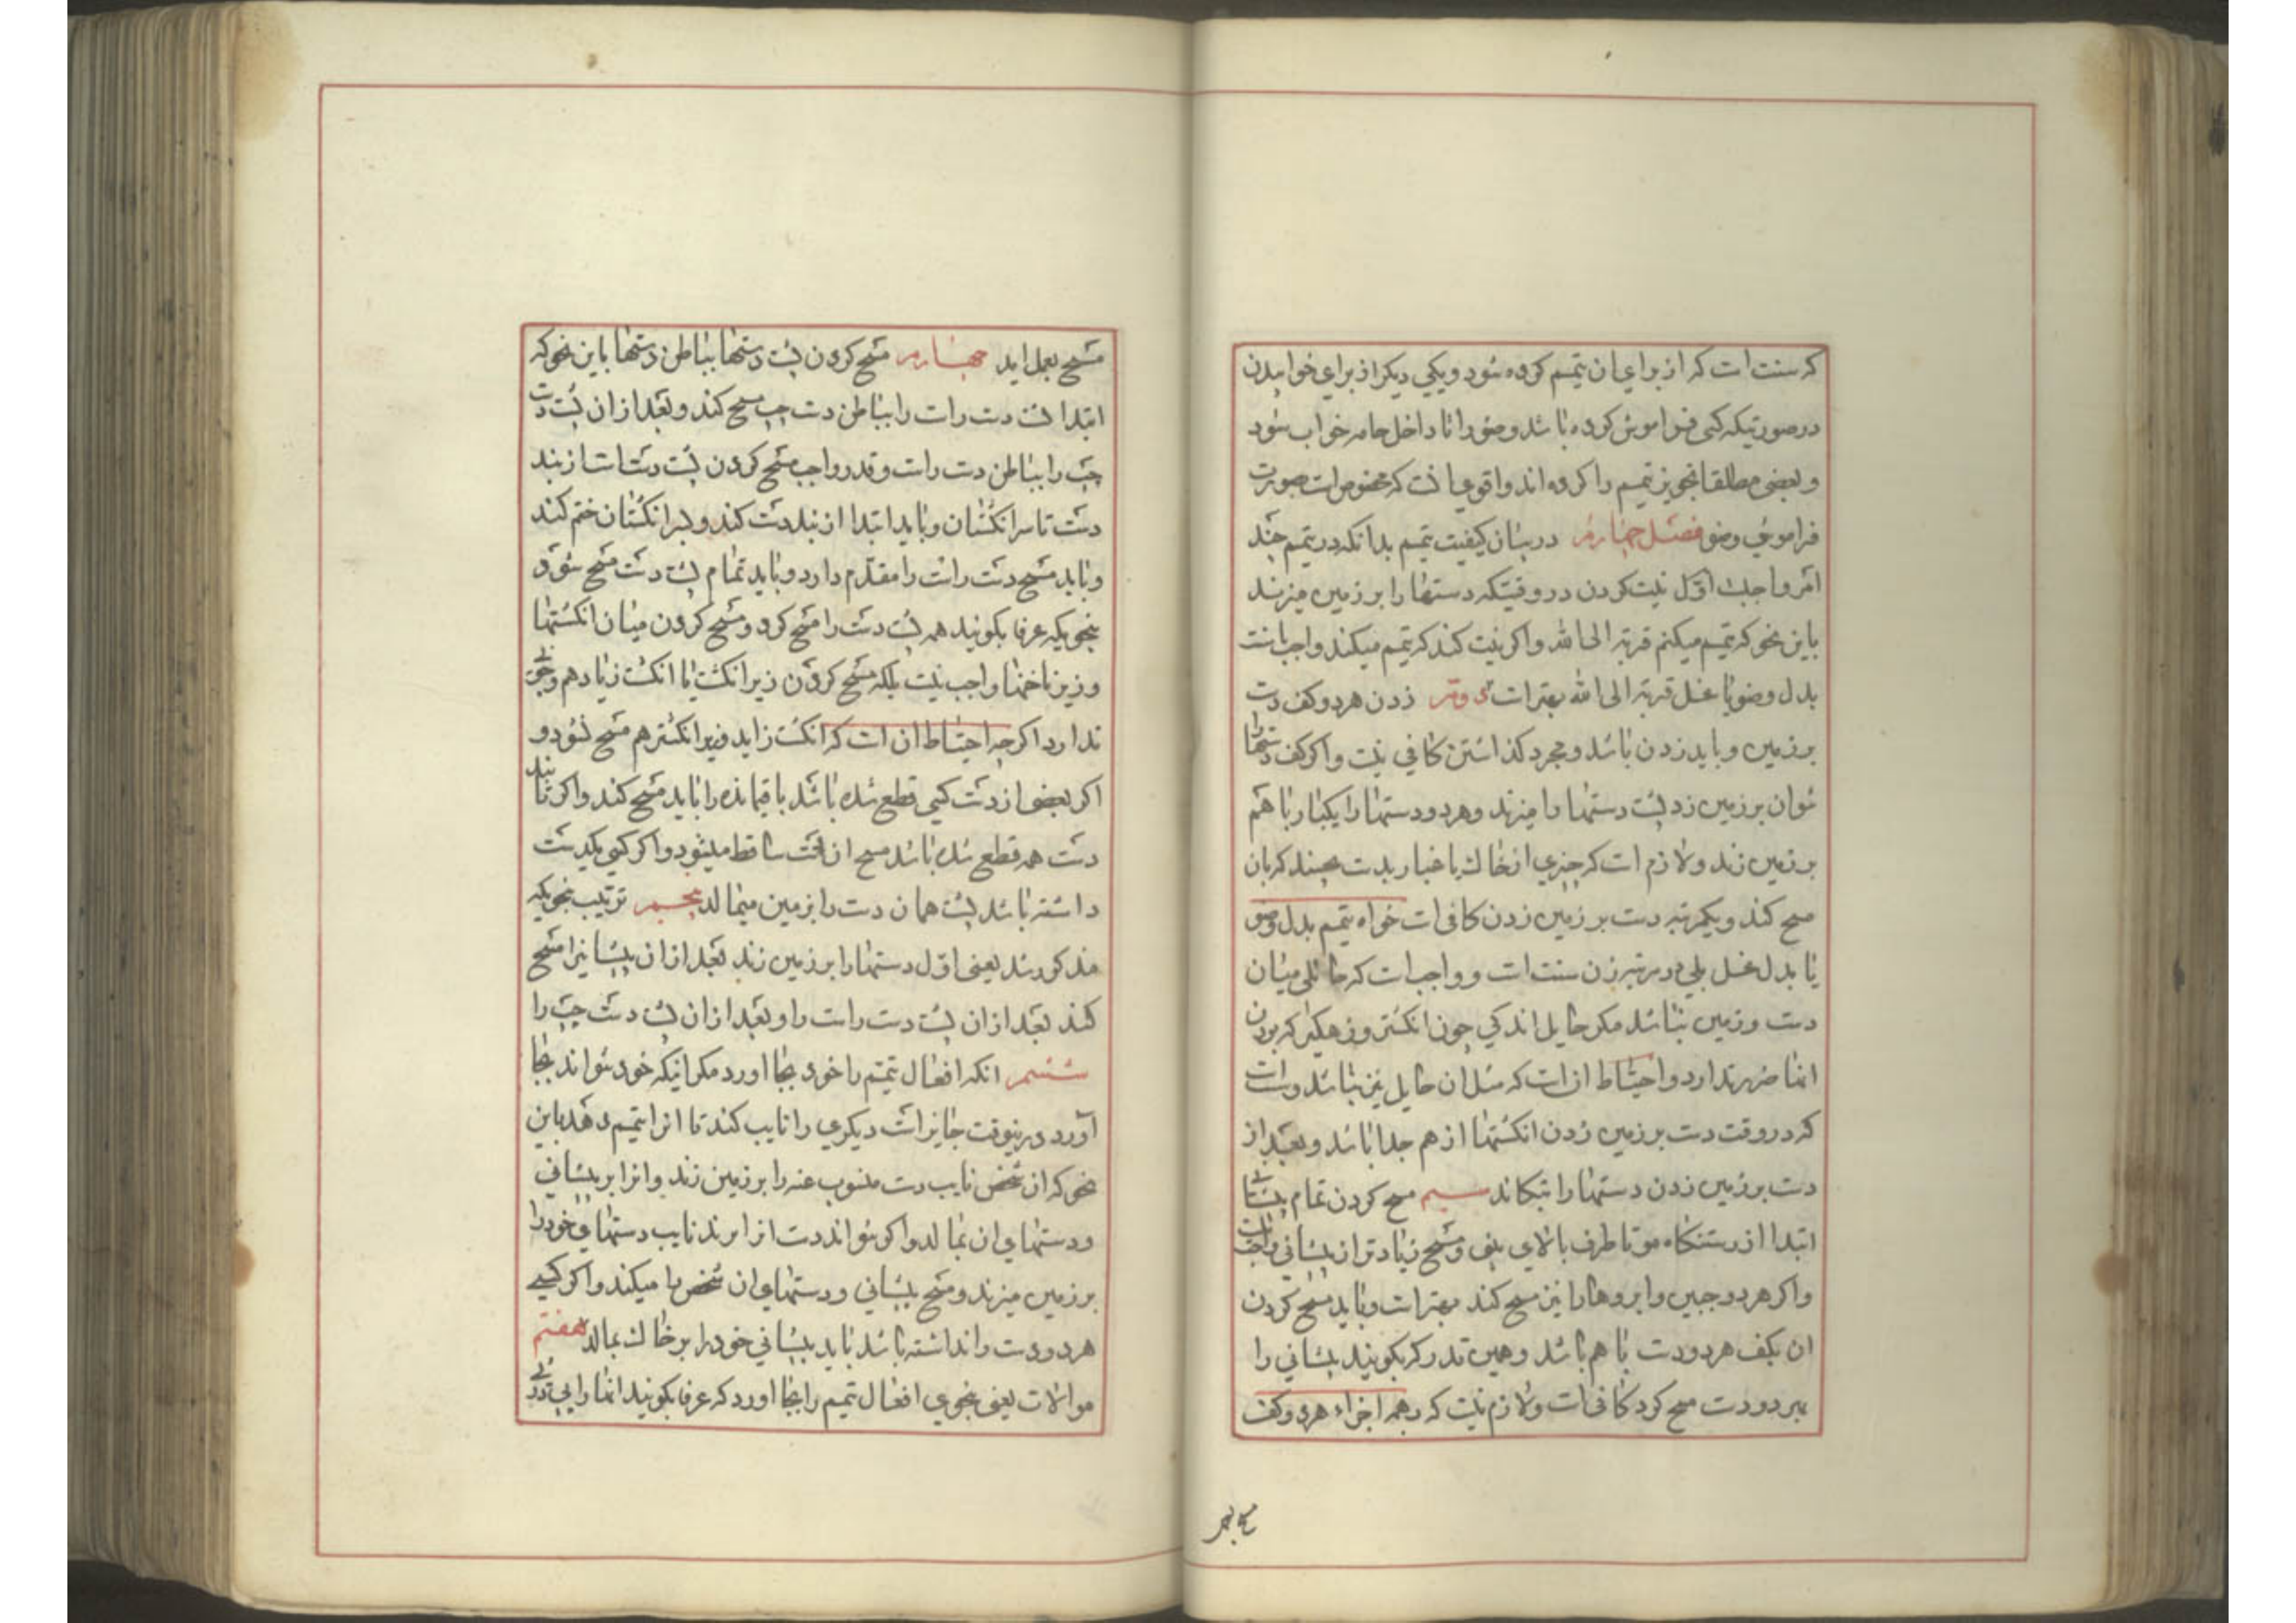 که سنت است که از برای ان تیمم کرده شود و یکی دیگر از برای خوابیدن
در صورتیکه کسی فراموش کرده باشد وضو را تا داخل جامه خواب شود
و بعضی مطلقا تجویز تیمم را کرده اند و اقوی انست که مخصوص است بصورت
فراموشی وضو فصل چهارم در بیان کیفیت تیمم بدانکه در تیمم چند
امر واجبست اول نیت کردن در وقتیکه دستها را بر زمین میزند
باین نحو که تیمم میکنم قربة الی الله و اگر نیت کند که تیمم میکند واجب یا سنت
بدل وضو یا غسل قربة الی الله بهتر است دوم زدن هر دو کف دست
بر زمین و باید زدن باشد و مجرد کذاشتن کافی نیست و اگر کف دستها
نتوان بر زمین زد پشت دستها را میزند و هر دو دستها را یکبار با هم
بر زمین زند و لازم است که چیزی از خاک یا غبار بدست بچسبد که بان
مسح کند و یکمرتبه دست بر زمین زدن کافی است خواه تیمم بدل وضو
یا بدل غسل بلی دو مرتبه زدن سنت است و واجب است که حائلی میان
دست و زمین نباشد مگر حایل اندکی چون انکشتر و زهگیر که بودن
انها ضرر ندارد و احتیاط ان است که مثل ان حایل نیز نباشد و سنت است
که در وقت دست بر زمین زدن انکشتها از هم جدا باشد و بعد از
دست بر زمین زدن دستها را بتکاند سیم مسح کردن تمام پیشانی
ابتدا از رستنکاه مو تا طرف بالای بینی و مسح زیادتر از پیشانی واجب نیست
و اگر هر دو جبین و ابروها را نیز مسح کند بهتر است و باید مسح کردن
ان بکف هر دو دست با هم باشد و همین قدر که بکویند پیشانی را
بهر دو دست مسح کرد کافی است و لازم نیست که بهمه اجزاء هر دو کف
مسح بعمل اید چهارم مسح کردن پشت دستها بباطن دستها باین نحو که
ابتدا پشت دست راست را بباطن دست چپ مسح کند و بعد از ان پشت دست
چپ را بباطن دست راست و قدر واجب مسح کردن پشت دستست از بند
دست تا سر انکشتان و باید ابتدا از بند دست کند و بسر انکشتان ختم کند
و باید مسح دست راست را مقدم دارد و باید تمام پشت دست مسح شود
بنحویکه عرفا بکویند همه پشت دست را مسح کرد و مسح کردن میان انکشتها
و زیر ناخنها واجب نیست بلکه مسح کردن زیر انکشت یا انکشت زیاد هم وجوبی
ندارد اگر چه احتیاط ان است که انکشت زاید و زیر انکشتر هم مسح شود و
اگر بعضی از دست کسی قطع شده باشد باقیمانده را باید مسح کند و اگر تا بند
دست همه قطع شده باشد مسح ان دست ساقط میشود و اگر کسی یکدست
داشته باشد پشت همان دست را بزمین میمالد پنجم ترتیب بنحویکه
مذکور شد یعنی اول دستها را بر زمین زند بعد از ان پیشانیرا مسح
کند بعد از ان پشت دست راست را و بعد از ان پشت دست چپ را
ششم انکه افعال تیمم را خود بجا اورد مگر اینکه خود نتواند بجا
آورد درینوقت جایز است دیکری را نایب کند تا انرا تیمم دهد باین
نحو که ان شخص نایب دست منسوب عنه را بر زمین زند و انرا بر پیشانی
و دستهای ان بمالد و اگر نتواند دست انرا برند نایب دستهای خود را
بر زمین میزند و مسح پیشانی و دستهای ان شخص را میکند و اگر کسی
هر دو دست را نداشته باشد باید پیشانی خود را بر خاک بمالد هفتم
موالات یعنی بنحوی افعال تیمم را بجا اورد که عرفا بکویند انها را پی در پی